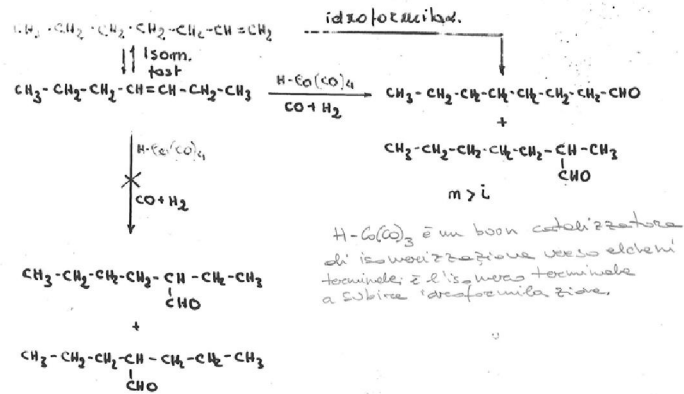 CH₃-CH₂-CH₂-CH₂-CH₂-CH₂-CH=CH₂
idroformilaz.
Isom.
fast
CH₃-CH₂-CH₂-CH=CH-CH₂-CH₃
H-Co(CO)₄
CO+H₂
CH₃-CH₂-CH₂-CH₂-CH₂-CH₂-CH₂-CHO
+
CH₃-CH₂-CH₂-CH₂-CH₂-CH-CH₃
CHO
n>i
H-Co(CO)₄
CO+H₂
H-Co(CO)₃ è un buon catalizzatore
di isomerizzazione verso alcheni
terminali; è l'isomero terminale
a subire idroformilazione.
CH₃-CH₂-CH₂-CH₂-CH-CH₂-CH₃
CHO
+
CH₃-CH₂-CH₂-CH-CH₂-CH₂-CH₃
CHO